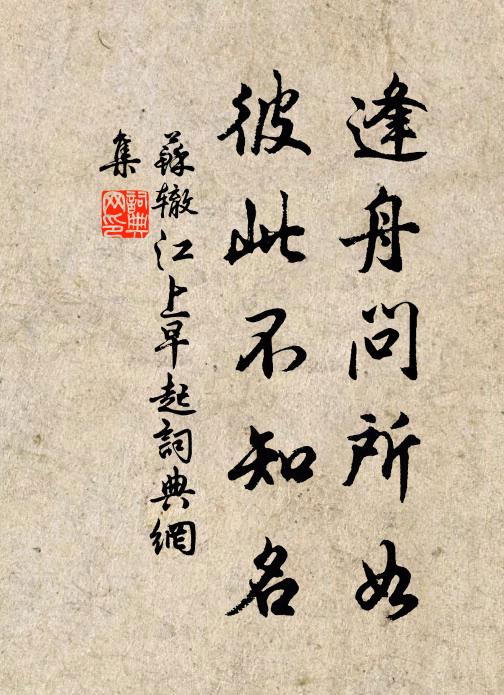 逢舟问所如
彼此不知名
蘇辙江上早起詞典網
集
詞典網印